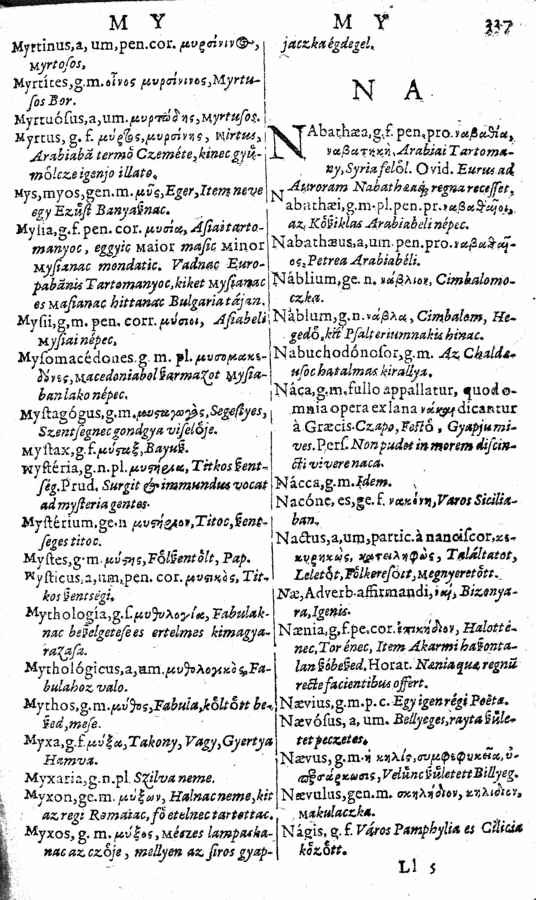 M Y
Myrtinus, a, um, pen. cor. μυρσίνινος,
Myrtosos.
Myrtítes, g. m. οἶνος μυρσίνινος, Myrtu-
sos Bor.
Myrtuósus, a, um. μυρτώδης, Myrtusos.
Myrtus, g. f. μύρτος, μυρσίνης, Mirtus,
Arabiabã termõ Czeméte, kinec gyü-
mölcze igenjo illato.
Mys, myos, gen. m. μῦς, Eger, Item neve
egy Ezüst Banyaßnac.
Mysia, g. f. pen. cor. μυσία, Asiai tarto-
manyoc, eggyic Maior masic Minor
Mysianac mondatic. Vadnac Euro-
pabãnis Tartomanyoc, kiket Mysianac
es Masianac hittanac Bulgaria tájan.
Mysii, g, m. pen. corr. μύσιοι, Asiabeli
Mysiai népec.
Mysomacédones. g. m. pl. μυσομακε-
δόνες, Macedoniabol ßarmazot Mysia-
ban lako népec.
Mystagógus, g, m. μυσταγωγὸς, Segestyes,
Szentsegnec gondgya viselöje.
Mystax, g, f. μύσταξ, Bayuß.
Mystéria, g. n. pl. μυστήρια, Titkos ßent-
ség. Prud. Surgit & immundus vocat
ad mysteria gentes.
Mystérium, ge. n μυστήριον, Titoc, ßent-
seges titoc.
Mystes, g. m. μύστης, Fölßentölt, Pap.
Mysticus, a, um, pen. cor. μυστικὸς, Tit-
kos ßentségi.
Mythología, g, f. μυθολογία, Fabulak-
nac beßelgetese es ertelmes kimagya-
razasa.
Mythológicus, a, um. μυθολογικὸς, Fa-
bulahoz valo.
Mythos, g, m. μύθος, Fabula, költött be-
ßed, mese.
Myxa, g, f. μύξα, Takony, Vagy, Gyertya
Hamva.
Myxaria, g. n. pl. Szilva neme.
Myxon, ge. m. μύξων, Halnac neme, kit
az regi Romaiac, fö etelnec tartottac.
Myxos, g. m. μύξος, Mészes lampaska-
nac az czöje, mellyen az siros gyap-
M Y 337
jaczka égdegel.
N A
NAbathæa, g, f. pen. pro. ναβαθαία,
ναβατηνὴ, Arabiai Tartoma-
ny, Syria felöl. Ovid. Eurus ad
Auroram Nabathæaq; regna recesset.
Nabathæi, g, m. pl. pen. pr. ναβαθαῖοι,
az, Kößiklas Arabiabeli népec.
Nabathæus, a, um. pen. pro. ναβαθαῖ-
ος, Petrea Arabiabéli.
Náblium, ge. n. νάβλιον, Cimbalomo-
czka.
Náblum, g. n. νάβλα, Cimbalom, He-
gedö, kit Psalteriumnak is hinac.
Nabuchodónosor, g, m. Az Chalde-
usoc hatalmas kirallya.
Náca, g, m, fullo appallatur, quod o-
mnia opera ex lana νάκη dicantur
à Græcis. Czapo, Festö, Gyapjumi-
ves. Pers. Non pudet in morem discin-
cti vivere naca.
Nácca, g, m. Idem.
Nacóne, es, ge. f. νακόνη, Varos Sicilia-
ban.
Nactus, a, um, partic. à nanciscor, κε-
κυρηκὼς, κατειληφὼς, Találtatot,
Leletöt, Fölkeresöit, Megnyeretött.
Næ, Adverb. affirmandi, ναὶ, Bizonya-
ra, Igenis.
Nænia, g, f. pe, cor. ἐπικήδιον, Halotté-
nec, Tor énec, Item Akarmi haßonta-
lan ßóbeßed. Horat. Nænia quæ regnũ
recte facientibus offert.
Nævius, g, m. p. c. Egy igen régi Poëta.
Nævósus, a, um. Bellyeges, rayta ßüle-
tet peczetes.
Nævus, g, m. ἡ κηλὶς, συμφεφυκυῖα, ὑ-
περσάρκωσις, Velünc ßületett Billyeg.
Nævulus, gen. m. σκηλήδιον, κηλίδιον,
Makulaczka.
Nágis, g. f. Város Pamphylia es Cilicia
között.
Ll 5